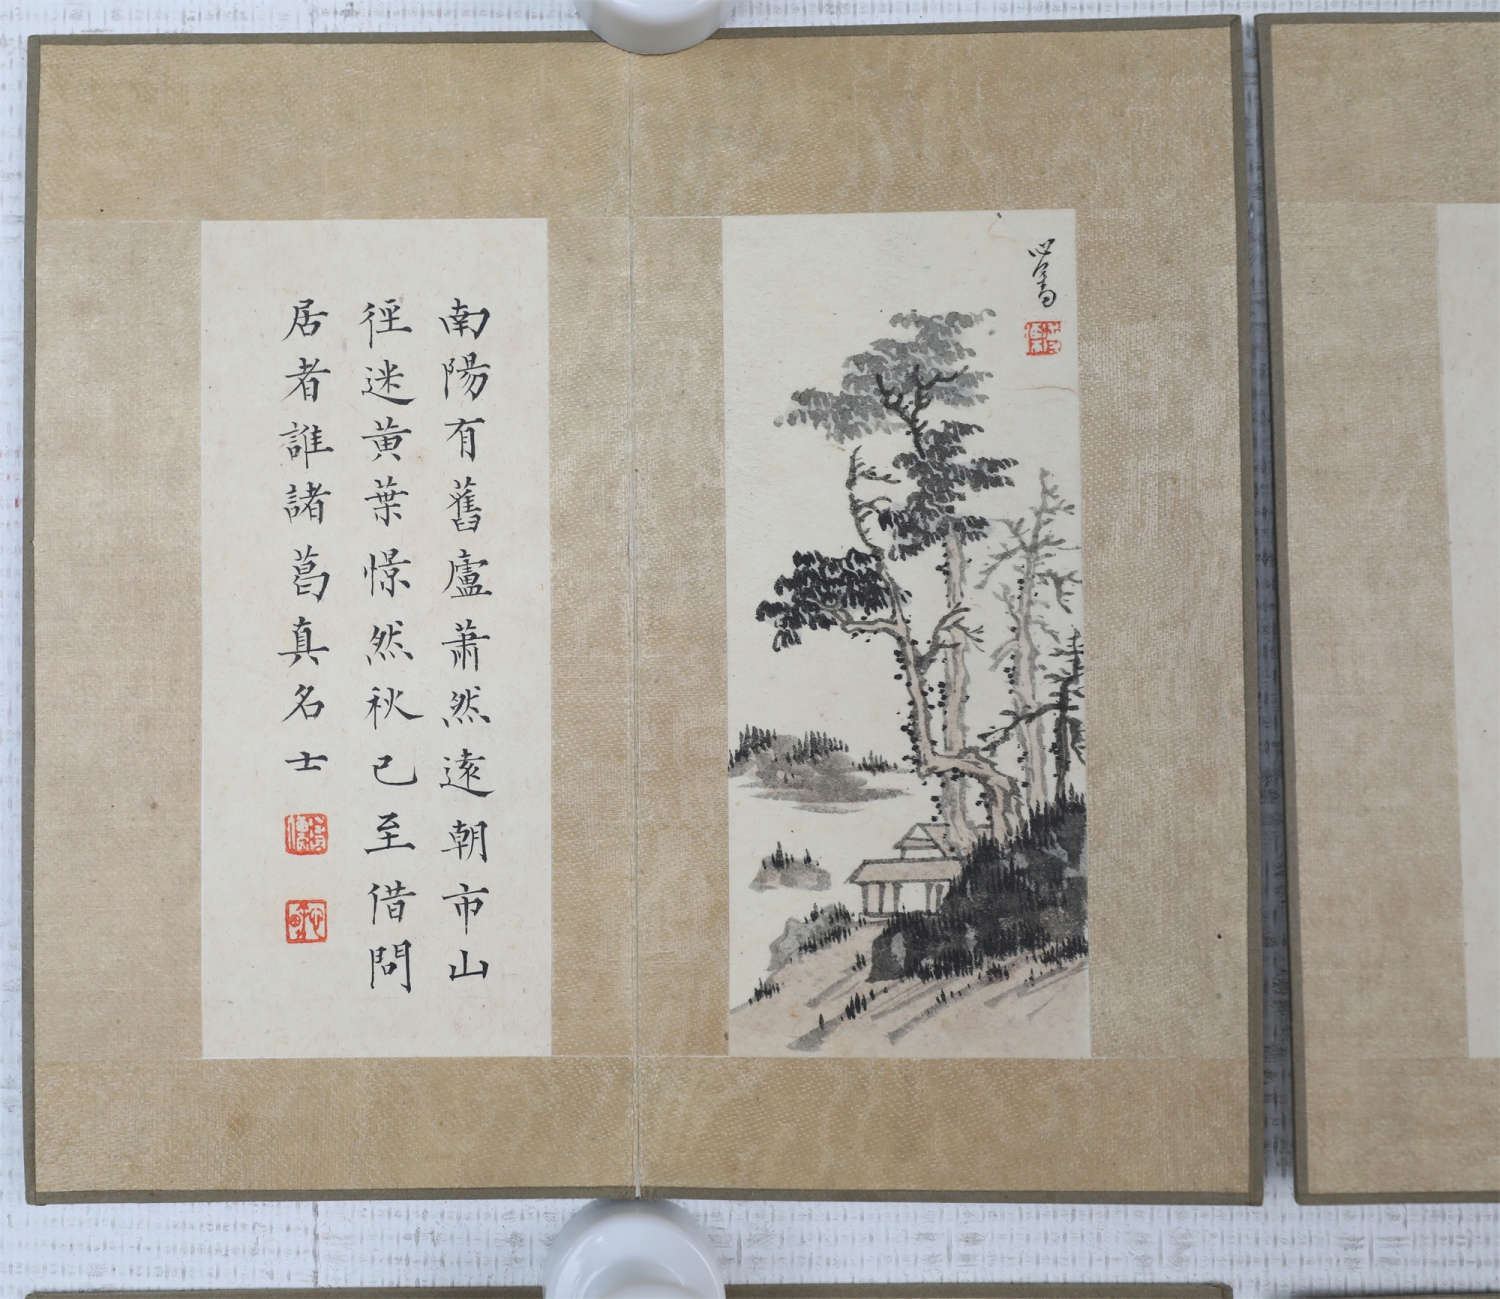 心畬
南陽有舊廬蕭然遠朝市山
徑迷黃葉憬然秋已至借問
居者誰諸葛真名士